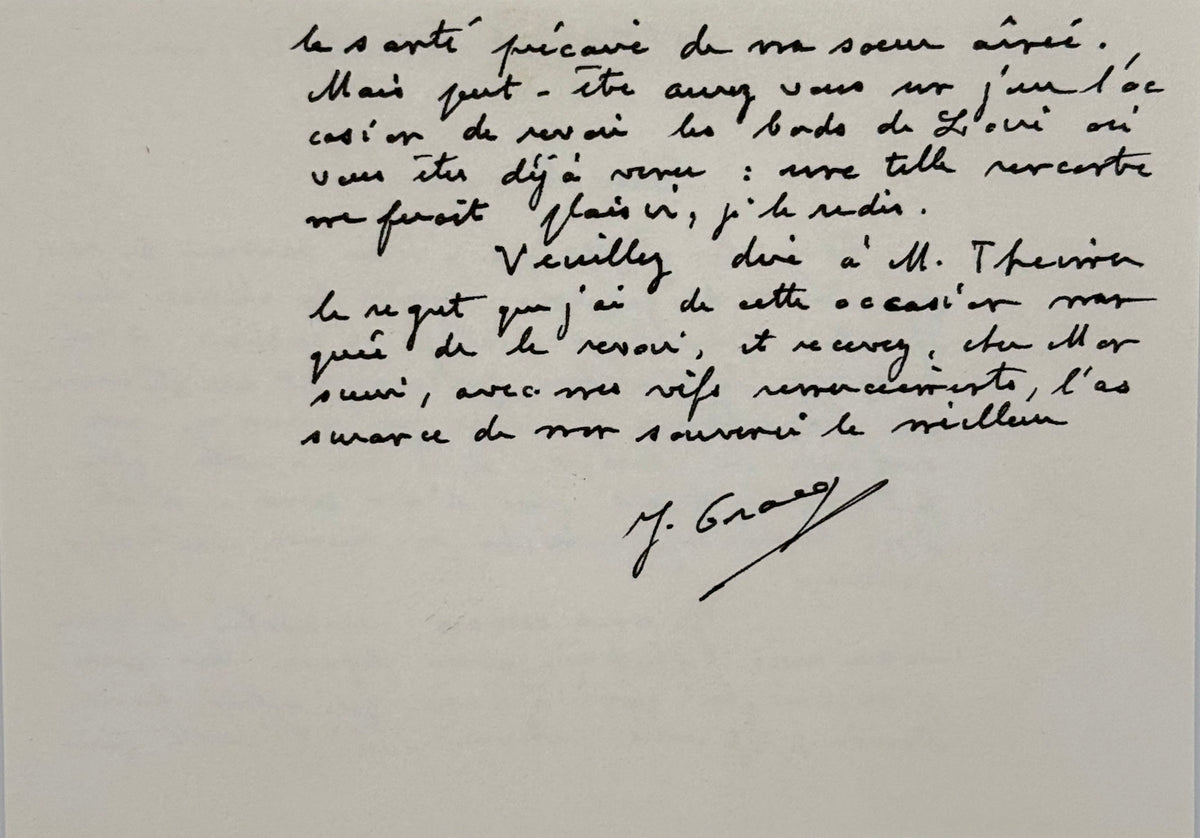 la santé précaire de ma soeur aînée.
Mais peut-être aurez vous un jour l'oc
casion de revoir les bords de Loire où
vous êtes déjà venu : une telle rencontre
me ferait plaisir, je le redis.
Veuillez dire à M. Theimer
le regret que j'ai de cette occasion man
quée de le revoir, et recevez, cher Mon
sieur, avec mes vifs remerciements, l'as
surance de mon souvenir le meilleur
J. Gracq